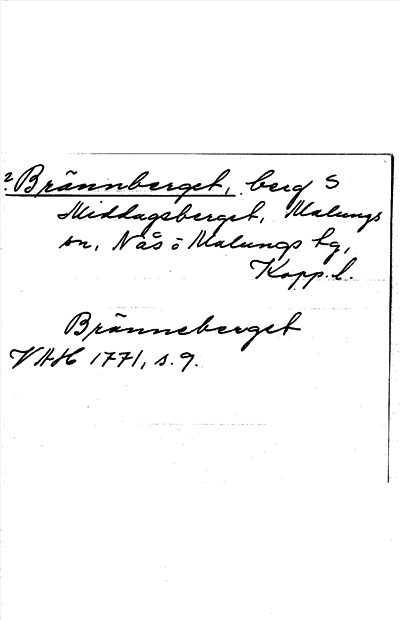 ? Brännberget, berg S
Middagsberget, Malungs
sn, Nås o Malungs tg,
Kopp. l.
Bränneberget
VAH 1771, s. 9.